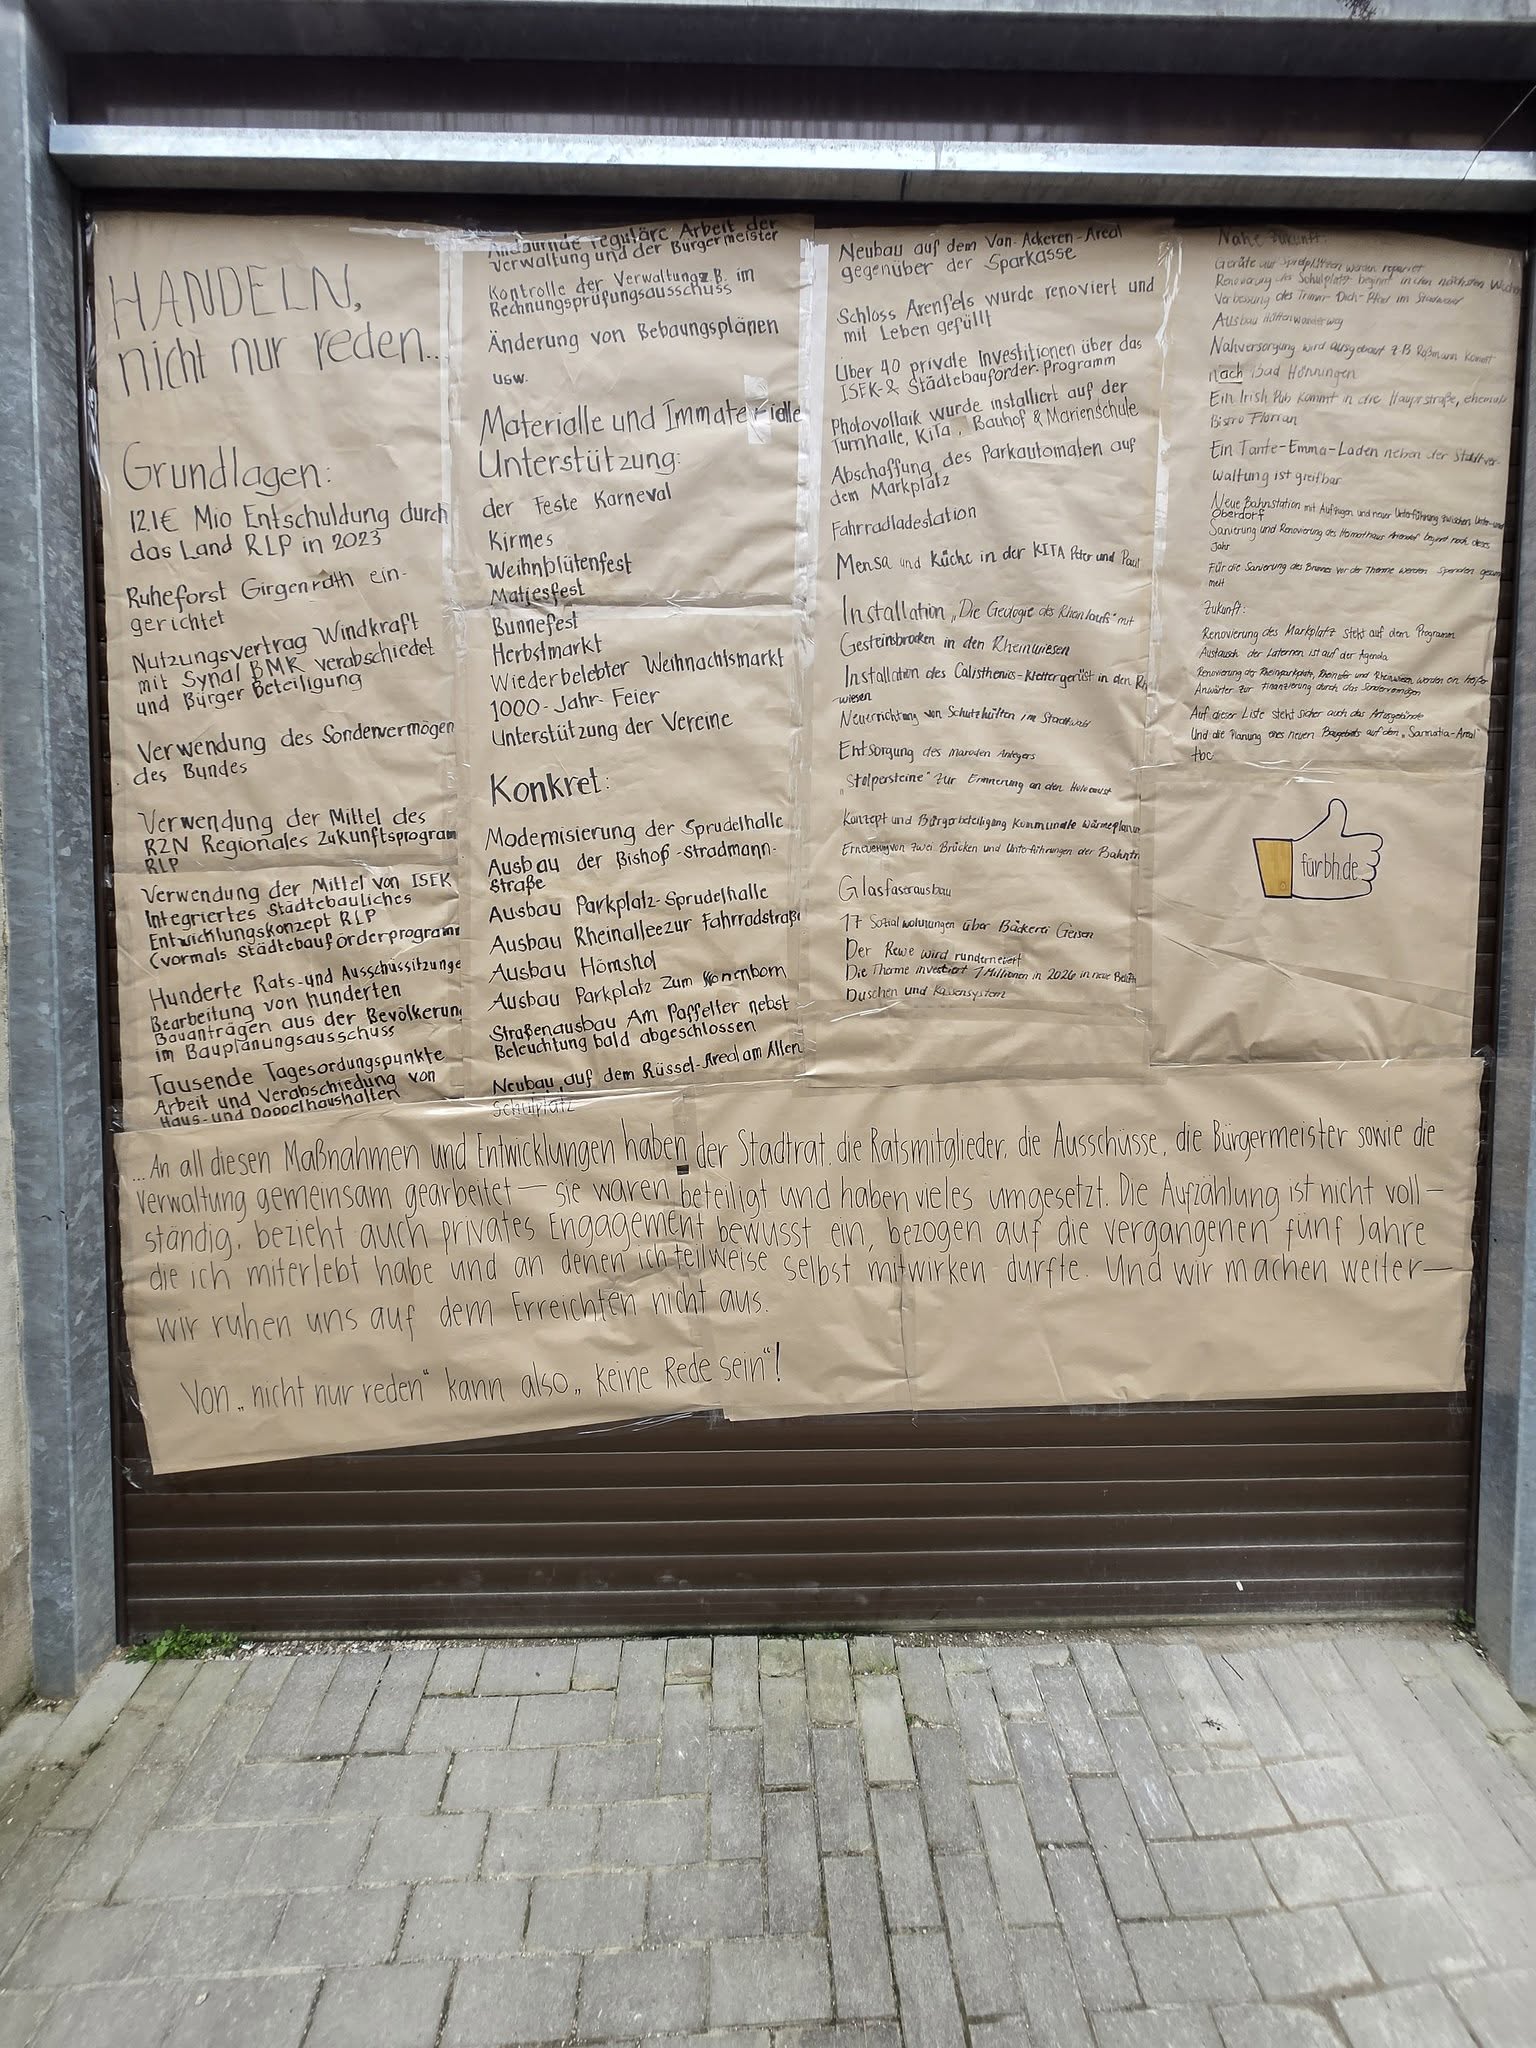 HANDELN,
nicht nur reden...
Grundlagen:
12.1€ Mio Entschuldung durch
das Land RLP in 2023
Ruheforst Girgenrath ein-
gerichtet
Nutzungsvertrag Windkraft
mit Synal BMK verabschiedet
und Bürger Beteiligung
Verwendung des Sondervermögen
des Bundes
Verwendung der Mittel des
RZN Regionales Zukunftsprogram
RLP
Verwendung der Mittel von ISEK
Integriertes Städtebauliches
Entwicklungskonzept RLP
(vormals Städtebauförderprogramm
Hunderte Rats-und Ausschüssitzunge
Bearbeitung von hunderten
Bauanträgen aus der Bevölkerung
im Bauplanungsausschuss
Tausende Tagesordungspunkte
Arbeit und Verabschiedung von
Haus-und Doppelhaushalten
Andaurnde reguläre Arbeit der
Verwaltung und der Bürgermeister
Kontrolle der Verwaltung z.B. im
Rechnungsprüfungsausschuss
Änderung von Bebaungsplänen
usw.
Materialle und Immaterialle
Unterstützung:
der Feste Karneval
Kirmes
Weihnblütenfest
Matjesfest
Bunnefest
Herbstmarkt
Wiederbelebter Weihnachtsmarkt
1000-Jahr-Feier
Unterstützung der Vereine
Konkret:
Modernisierung der Sprudelhalle
Ausbau der Bishof-Stradmann-
Straße
Ausbau Parkplatz-Sprudelhalle
Ausbau Rheinallee zur Fahrradstraße
Ausbau Hömshof
Ausbau Parkplatz Zum Konenborn
Straßenausbau Am Paffelter nebst
Beleuchtung bald abgeschlossen
Neubau auf dem Rüssel-Areal am Alten
Schulplatz
Neubau auf dem Van-Ackeren-Areal
gegenüber der Sparkasse
Schloss Arenfels wurde renoviert und
mit Leben gefüllt
Über 40 private Investitionen über das
ISEK-& Städtebauförder-Programm
Photovollaik wurde installiert auf der
Turnhalle, KiTa, Bauhof & Marienschule
Abschaffung des Parkautomaten auf
dem Markplatz
Fahrradladestation
Mensa und Küche in der KITA Peter und Paul
Installation „Die Geologie des Rheinlaufs" mit
Gesteinsbrocken in den Rheinwiesen
Installation des Calisthenics-Klettergerüst in den Rh
wiesen
Neuerrichtung von Schutzhütten im Stadtwald
Entsorgung des maroden Anlegers
„Stolpersteine" zur Erinnerung an den Holocaust
Konzept und Bürgerbeteiligung Kommunale Wärmeplanun
Erneuerung von zwei Brücken und Unterführungen der Bahntr
Glasfaserausbau
17 Sozialwohnungen über Bäckerei Geisen
Der Rewe wird runderneuert
Die Therme investiert 1 Millionen in 2026 in neue
Duschen und Kassensystem
Nahe Zukunft:
Geräte auf Spielplätzen werden repariert
Renovierung des Schulplatz beginnt in den nächsten Woche
Verbessung des Trimm-Dich-Pfad im Stadtwald
Ausbau Hüttenwanderweg
Nahversorgung wird ausgebaut z.B Roßmann kommt
nach Bad Hönningen
Ein Irish Pub kommt in die Haupstraße, ehemals
Bistro Florian
Ein Tante-Emma-Laden neben der Stadtver-
waltung ist greifbar
Neue Bahnstation mit Aufzügen und neuer Unterführung zwischen Unter-und
Oberdorf
Sanierung und Renovierung des Heimathaus Ariendorf beginnt noch dieses
Jahr
Für die Sanierung des Brunnes vor der Therme werden Spenden gesam
melt
Zukunft:
Renovierung des Markplatz steht auf dem Programm
Austausch der Laternen ist auf der Agenda
Renovierung der Rheinparkplatz, Rheinufer und Rheinwiesen werden ein heißer
Anwärter zur Finanzierung durch das Sondervermögen
Auf dieser Liste steht sicher auch das
Und die Planung eines neuen Baugebiets auf dem „Sarmatia-Areal"
tbc
fürbh.de
...An all diesen Maßnahmen und Entwicklungen haben der Stadtrat, die Ratsmitglieder, die Ausschüsse, die Bürgermeister sowie die
Verwaltung gemeinsam gearbeitet — sie waren beteiligt und haben vieles umgesetzt. Die Aufzählung ist nicht voll-
ständig, bezieht auch privates Engagement bewusst ein, bezogen auf die vergangenen fünf Jahre
die ich miterlebt habe und an denen ich teilweise selbst mitwirken durfte. Und wir machen weiter—
wir ruhen uns auf dem Erreichten nicht aus.
Von „nicht nur reden" kann also „keine Rede sein"!